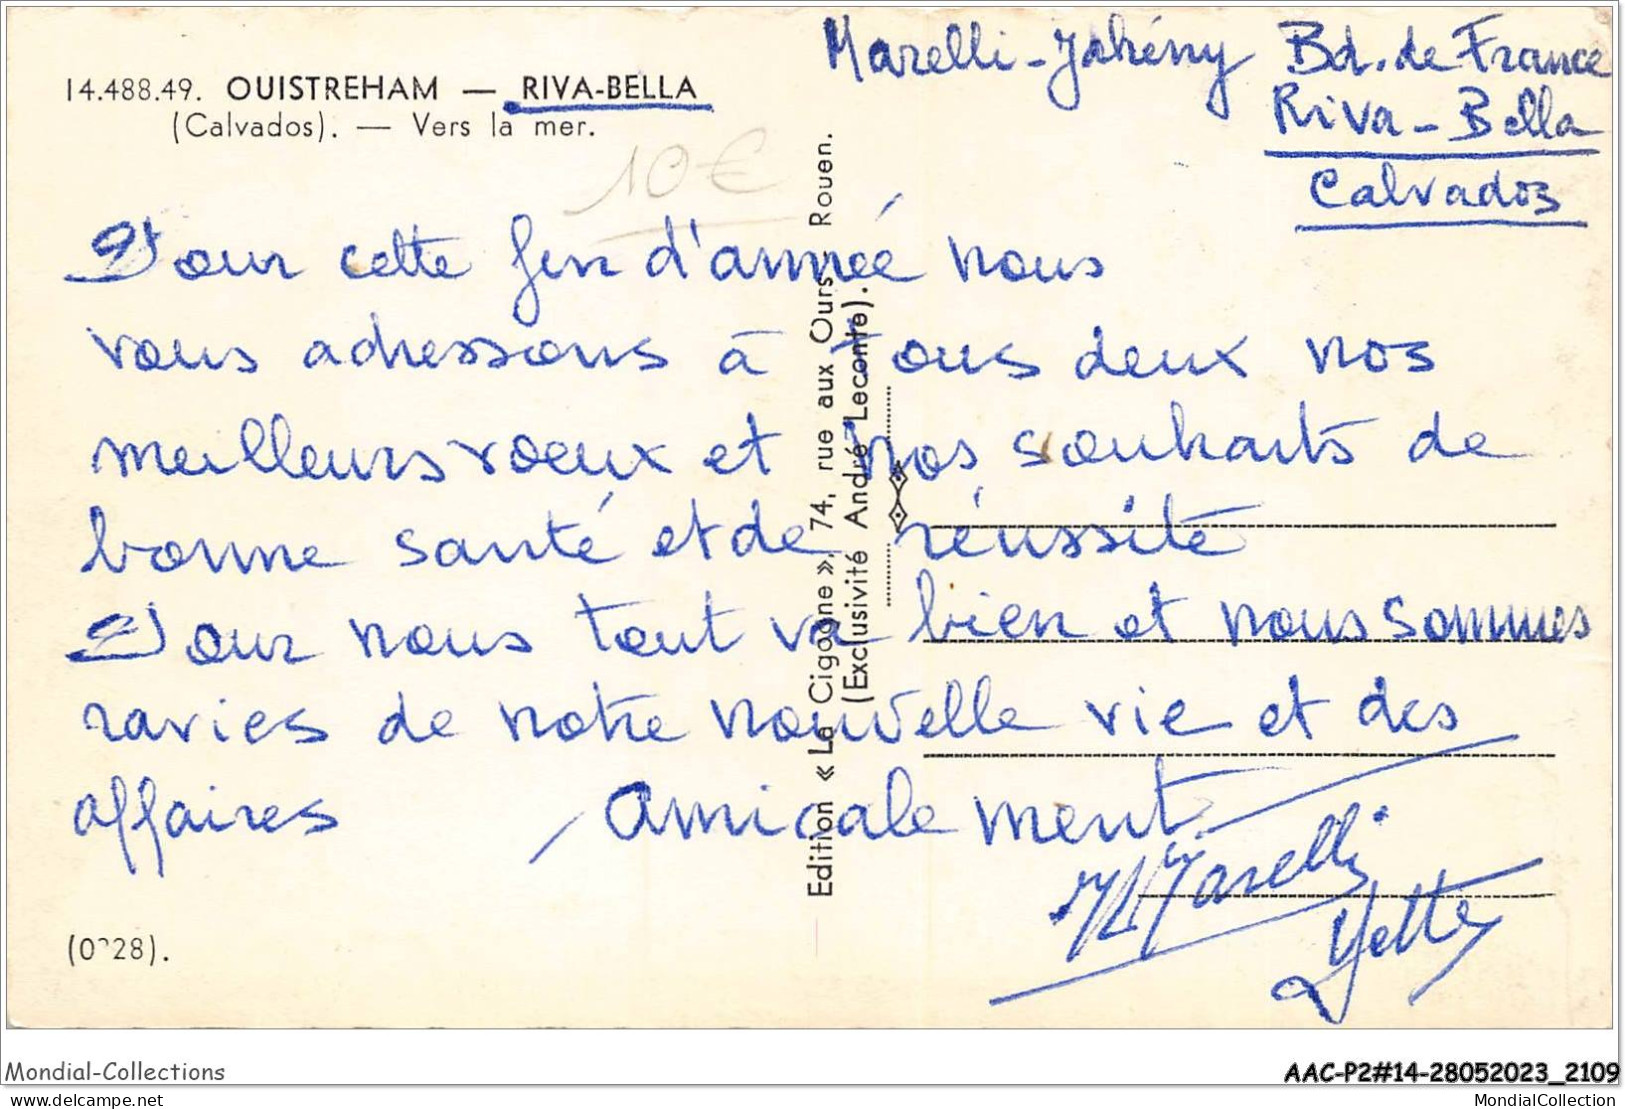 Marelli-Jahény Bd. de France
Riva-Bella
Calvados
14.488.49. OUISTREHAM — RIVA-BELLA
(Calvados). — Vers la mer.
10€
Pour cette fin d'année nous
vous adressons à tous deux nos
meilleurs voeux et nos souhaits de
bonne santé et de réussite
Pour nous tout va bien et nous sommes
ravies de notre nouvelle vie et des
affaires Amicalement
Marelli
Yette
Edition « La Cigogne », 74, rue aux Ours, Rouen.
(Exclusivité André Leconte).
Mondial-Collections
AAC-P2#14-28052023_2109
delcampe.net
MondialCollection